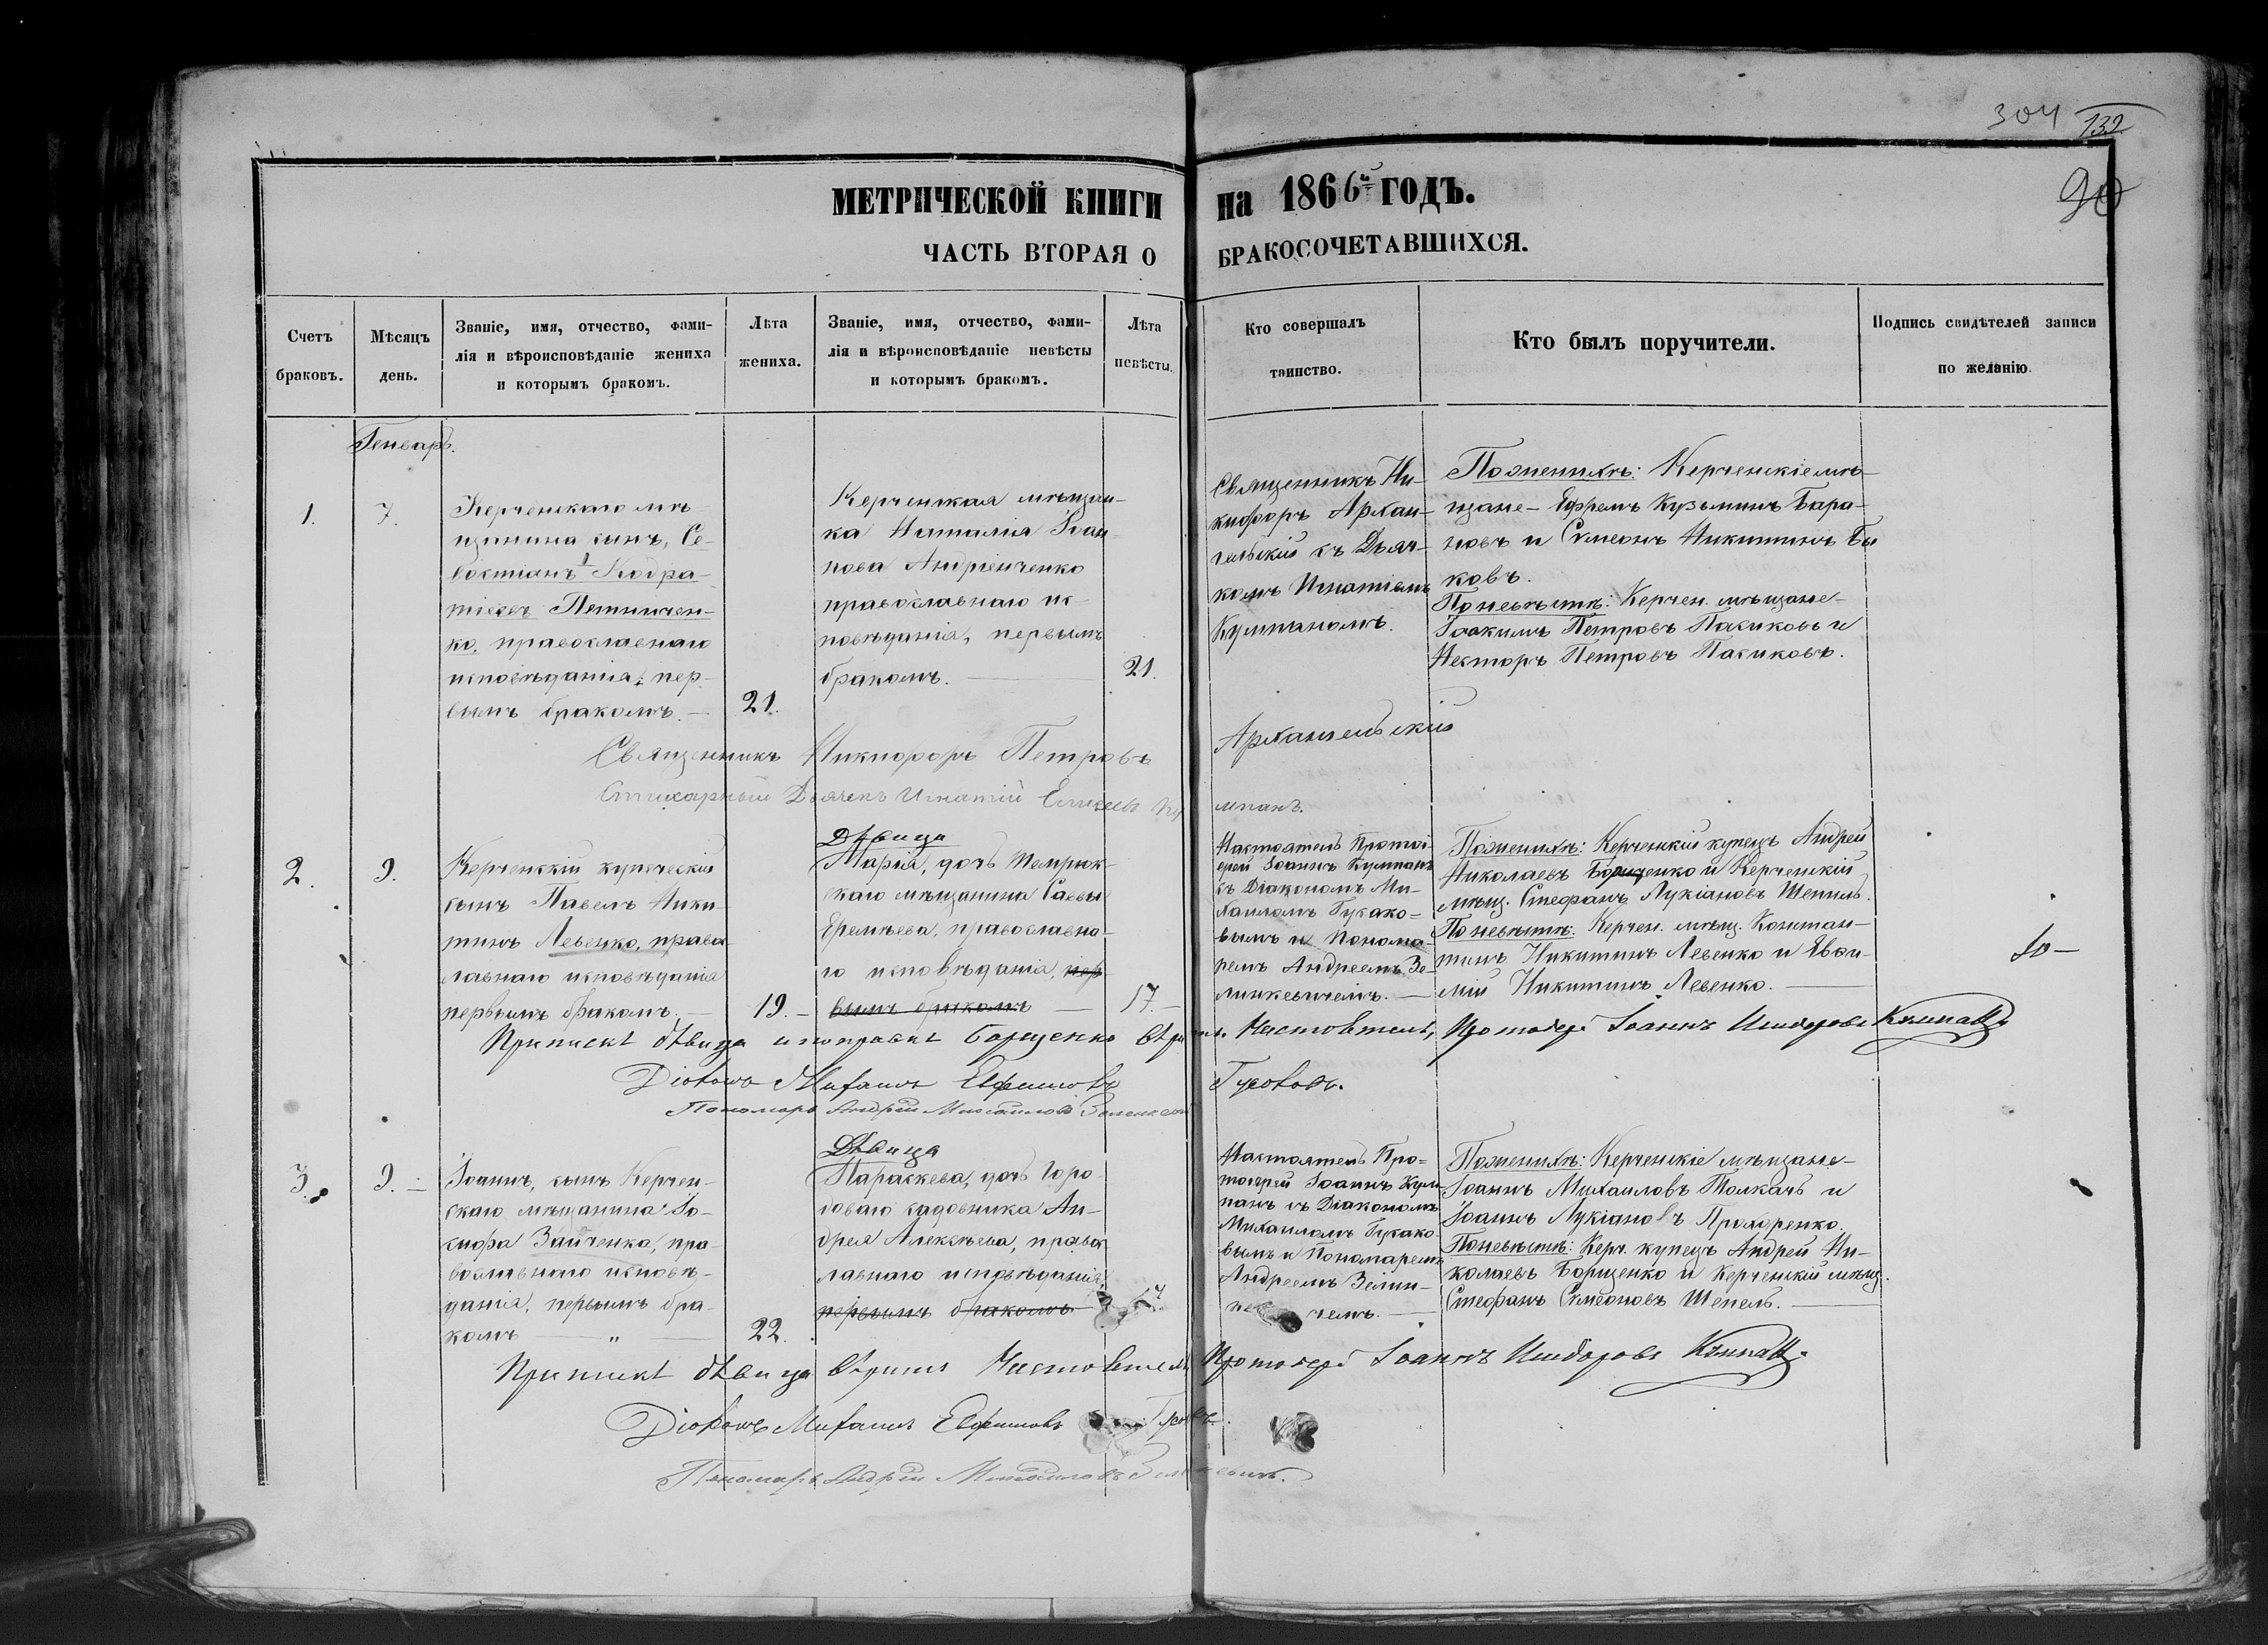 304 132
90
МЕТРИЧЕСКОЙ КНИГИ на 1866й ГОДЪ.
ЧАСТЬ ВТОРАЯ О БРАКОСОЧЕТАВШИХСЯ.
Счетъ
браковъ.
Мѣсяцъ
день.
Званіе, имя, отчество, фами-
лія и вѣроисповѣданіе жениха
и которымъ бракомъ.
Лѣта
жениха.
Званіе, имя, отчество, фами-
лія и вѣроисповѣданіе невѣсты
и которымъ бракомъ.
Лѣта
невѣсты.
Кто совершалъ
таинство.
Кто былъ поручители.
Подпись свидѣтелей записи
по желанію.
Генварь.
1.
7.
Керченскаго мѣ-
щанина сынъ, Се-
вастіанъ Кодра-
тіевъ Петниченко-
ко, православнаго
исповѣданія, пер-
вымъ бракомъ. —
21.
Керченская мѣщан-
ка Наталія Іоан-
нова Андріенченко
православнаго ис-
повѣданія, первымъ
бракомъ. —
21.
Священникъ Ни-
кифоръ Архан-
гельскій съ Дьяч-
комъ Игнатіемъ
Кумпаномъ.
По женихѣ: Керченскіе мѣ-
щане— Ефремъ Кузьминъ Бара-
новъ и Симеонъ Никитинъ Бы
ковъ.
По невѣстѣ: Керчен. мѣщане—
Іоакимъ Петровъ Пасиковъ и
Несторъ Петровъ Пасиковъ.
Священникъ Никифоръ Петровъ Архангельскій
Стихарный Дьячекъ Игнатій Елисеевъ Кумпанъ.
2.
9.
Керченскій купеческій
сынъ Павелъ Ники-
тинъ Левенко, правос
лавнаго исповѣданія
первымъ бракомъ. —
19. —
Дѣвица
Марія, дочь Темрюк-
скаго мѣщанина Саввы
Еремѣева, православна-
го исповѣданія, пер
вымъ бракомъ —
17. —
Настоятель Протоі-
ерей Іоаннъ Кумпанъ
съ Діакономъ Ми-
хаиломъ Гусако-
вымъ и Понома-
ремъ Андреемъ Зе-
линкевичемъ. —
По женихѣ: Керченскій купецъ Андрей
Николаевъ Борщенко и Керченскій
мѣщ. Стефанъ Лукіановъ Шепель.
По невѣстѣ: Керчен. мѣщ. Констан-
тинъ Никитинъ Левенко и Евфи-
мій Никитинъ Левенко. —
Припискѣ дѣвица и поправкѣ Борщенко вѣрить. Настоятель, Протоіерей Іоаннъ Исидоровъ Кумпанъ
Діаконъ Михаилъ Евфимовъ Гусаковъ.
Пономарь Андрей Михайловъ Зелинкевичъ
3.
9. —
Іоаннъ, сынъ Керчен-
скаго мѣщанина Іо-
сифа Зайченка, пра-
вославнаго исповѣ-
данія, первымъ бра-
комъ — „ —
22.
Дѣвица
Параскева, дочь Горо-
доваго садовника Ан-
дрея Алексѣева, правос
лавнаго исповѣданія,
первымъ бракомъ
17.
Настоятель Про-
тоіерей Іоаннъ Кум-
панъ съ Діакономъ
Михаиломъ Гусако-
вымъ и Пономаремъ
Андреемъ Зелин-
чемъ. —
По женихѣ: Керченскіе мѣщане—
Іоаннъ Михаиловъ Толкачъ и
Іоаннъ Лукіановъ Прохоренко.
По невѣстѣ: Керч. купецъ Андрей Ни-
колаевъ Борщенко и Керченскій мѣщ.
Стефанъ Симеоновъ Шепель. —
Припискѣ дѣвица вѣрить Настоятель Протоіерей Іоаннъ Исидоровъ Кумпанъ.
Діаконъ Михаилъ Евфимовъ Гусаковъ.
Пономарь Андрей Михайловъ Зелинкевичъ.